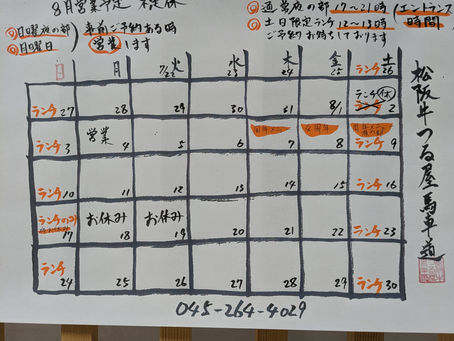 8月営業予定 不定休
◎日曜夜の部
◎日曜日
事前ご予約ある時
営業します
◎通常夜の部 17〜21時(エントランス
時間
◎土日限定ランチ 12〜13時
ご予約お待ちしております
日 月 7/22火 23 木24 金25 土26
ランチ27 28 29 30 31 8/1 ランチ 休 2
ランチ3 営業4 5 6 7 8 ランチ9
ランチ10 11 12 13 14 15 ランチ16
ランチのみ17 お休み18 お休み19 20 21 22 ランチ23
ランチ24 25 26 27 28 29 ランチ30
松阪牛つる屋馬車道
045-264-4029